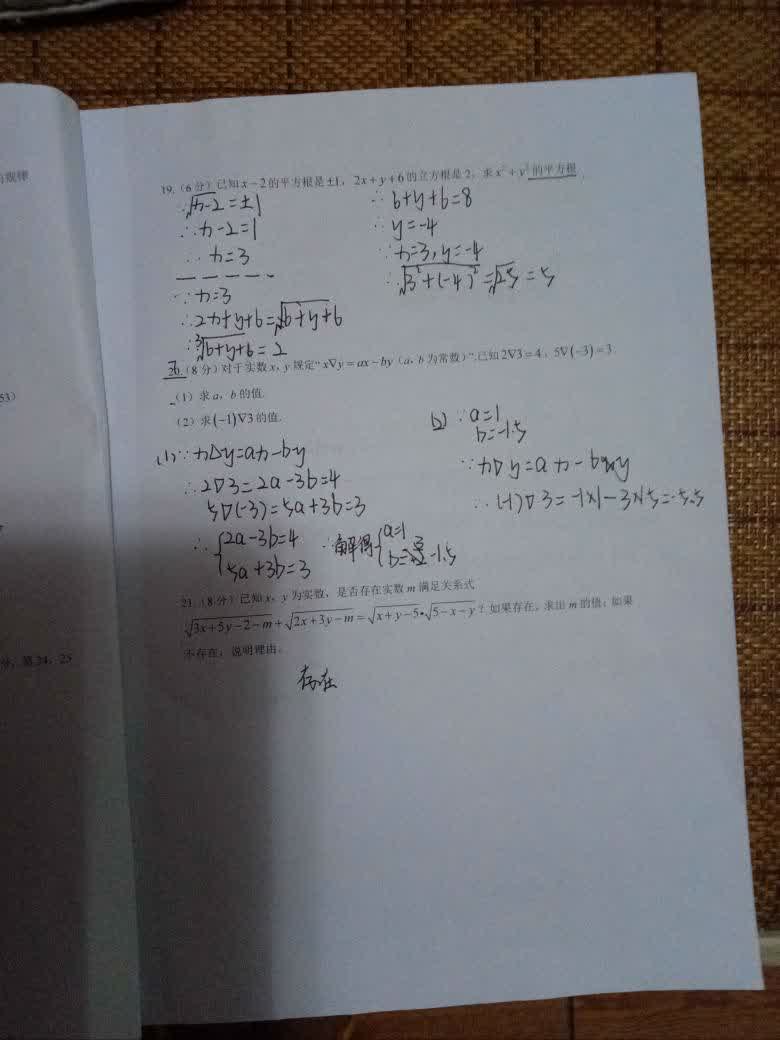 的规律
53)
分，第24、25
19.（6分）已知x－2的平方根是±1，2x＋y＋6的立方根是2，求x²＋y²的平方根
∵√x-2=±1
∴x-2=1
∴x=3
∵x=3
∴2x+y+6=√6+y+6
∵³√6+y+6=2
∴6+y+6=8
∴y=-4
∵x=3,y=-4
∴√3²+(-4)²=√25=5
20.（8分）对于实数x，y规定“x∇y＝ax－by（a，b为常数）”.已知2∇3＝4，5∇(－3)＝3.
（1）求a，b的值.
（2）求(－1)∇3的值.
(1)∵x△y=ax-by
∴2∇3=2a-3b=4
5∇(-3)=5a+3b=3
∴{2a-3b=4
5a+3b=3
∴解得{a=1
b=-1.5
(2)∵a=1
b=-1.5
∵x∇y=ax-by
∴(-1)∇3=-1×1-3×1.5=-5.5
21.（8分）已知x，y为实数，是否存在实数m满足关系式
√3x+5y-2-m+√2x+3y-m=√x+y-5•√5-x-y？如果存在，求出m的值；如果
不存在，说明理由。
存在